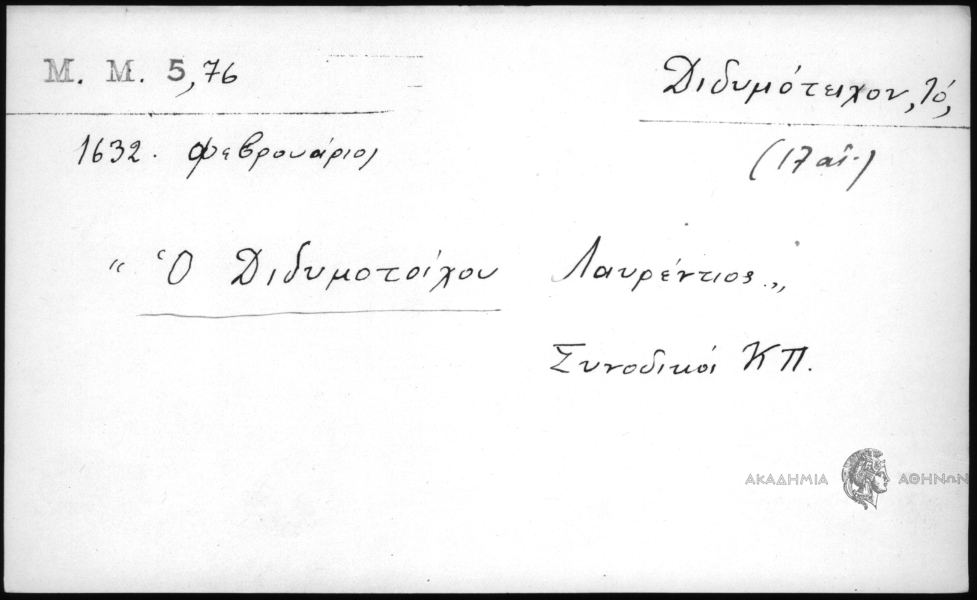 Μ. Μ. 5,76
Διδυμότειχον, τό,
1632. Φεβρουάριος
(17 αἰ.)
“ Ὁ Διδυμοτοίχου Λαυρέντιος „
Συνοδικοί ΚΠ.
ΑΚΑΔΗΜΙΑ ΑΘΗΝΩΝ